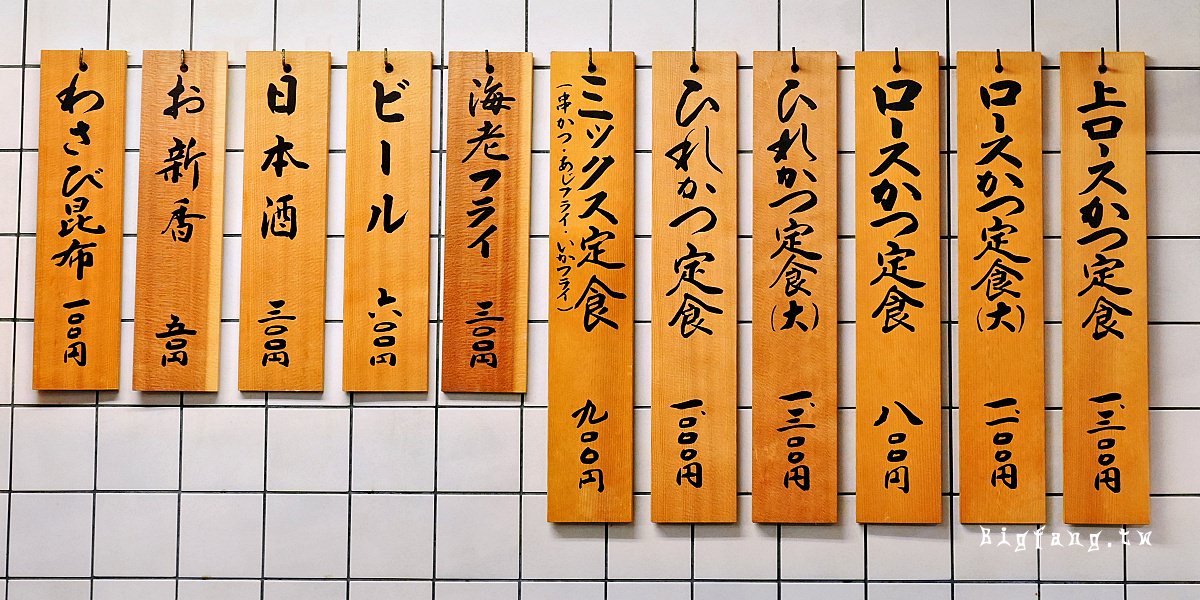 上ロースかつ定食 一、三〇〇円
ロースかつ定食(大) 一、一〇〇円
ロースかつ定食 八〇〇円
ひれかつ定食(大) 一、三〇〇円
ひれかつ定食 一、〇〇〇円
ミックス定食 九〇〇円
(串かつ・あじフライ・いかフライ)
海老フライ 三〇〇円
ビール 六〇〇円
日本酒 三〇〇円
お新香 五〇円
わさび昆布 一〇〇円
Bigfang.tw